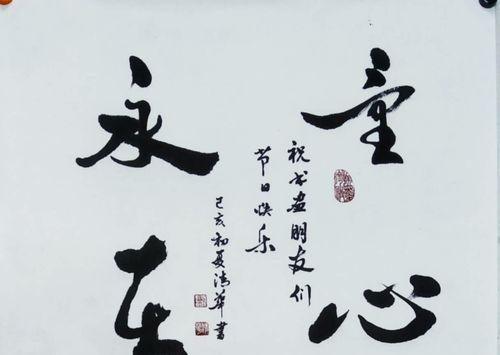 童心
永在
祝书画朋友们
节日快乐
己亥初夏清华书